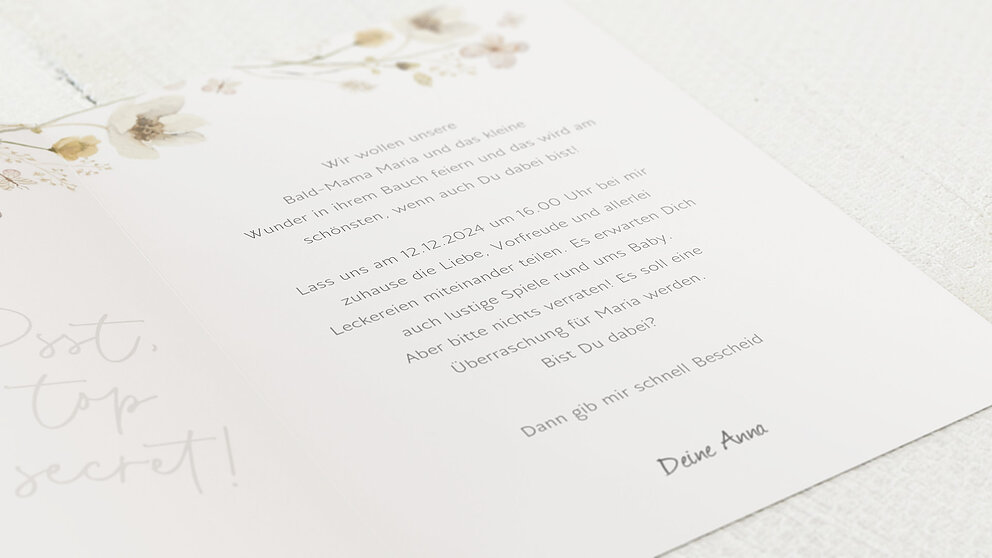 Wir wollen unsere
Bald-Mama Maria und das kleine
Wunder in ihrem Bauch feiern und das wird am
schönsten, wenn auch Du dabei bist!
Lass uns am 12.12.2024 um 16.00 Uhr bei mir
zuhause die Liebe, Vorfreude und allerlei
Leckereien miteinander teilen. Es erwarten Dich
auch lustige Spiele rund ums Baby.
Aber bitte nichts verraten! Es soll eine
Überraschung für Maria werden.
Bist Du dabei?
Dann gib mir schnell Bescheid
Deine Anna
Psst,
top
secret!